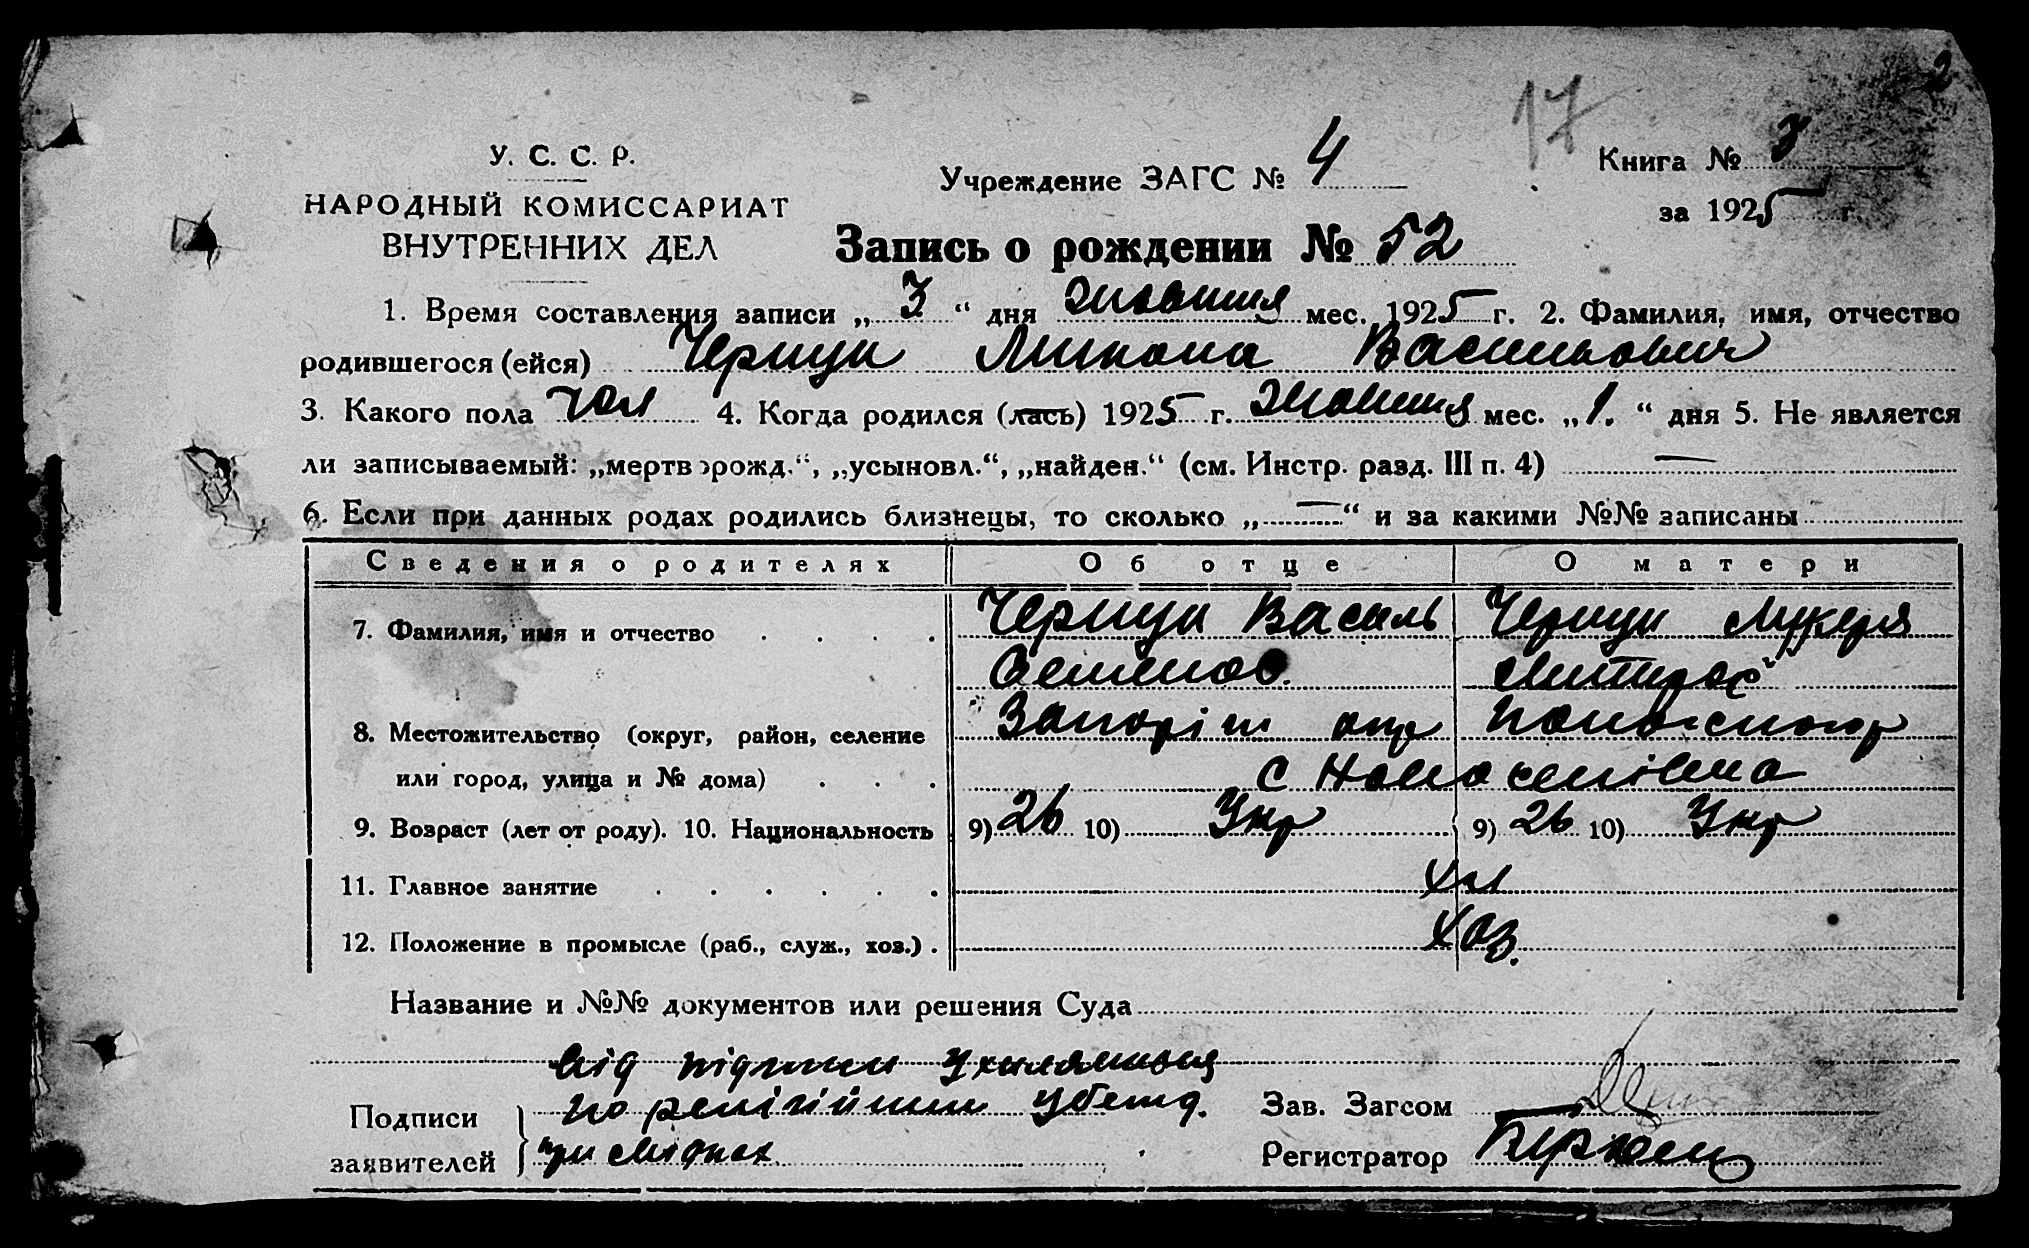 2
17
У. С. С. Р.
Учреждение ЗАГС № 4
Книга № 3
НАРОДНЫЙ КОМИССАРИАТ
за 1925 г.
ВНУТРЕННИХ ДЕЛ
Запись о рождении № 52
1. Время составления записи „ 3 “ дня жовтня мес. 1925 г. 2. Фамилия, имя, отчество
родившегося (ейся) Микола Васильович
3. Какого пола чол 4. Когда родился (лась) 1925 г. жовтня мес. „ 1. “ дня 5. Не является
ли записываемый: „мертворожд.“, „усыновл.“, „найден.“ (см. Инстр. разд. III п. 4) —
6. Если при данных родах родились близнецы, то сколько „ — “ и за какими №№ записаны
Сведения о родителях Об отце О матери
7. Фамилия, имя и отчество Василь Лукеря
Семенов.
8. Местожительство (округ, район, селение Запоріж окр
или город, улица и № дома) с
9. Возраст (лет от роду). 10. Национальность 9) 26 10) Укр 9) 26 10) Укр
11. Главное занятие Хл
12. Положение в промысле (раб., служ., хоз.) Хоз.
Название и №№ документов или решения Суда
від підписи
по релігійним убежд.
Подписи
заявителей
при свідках
Зав. Загсом
Регистратор